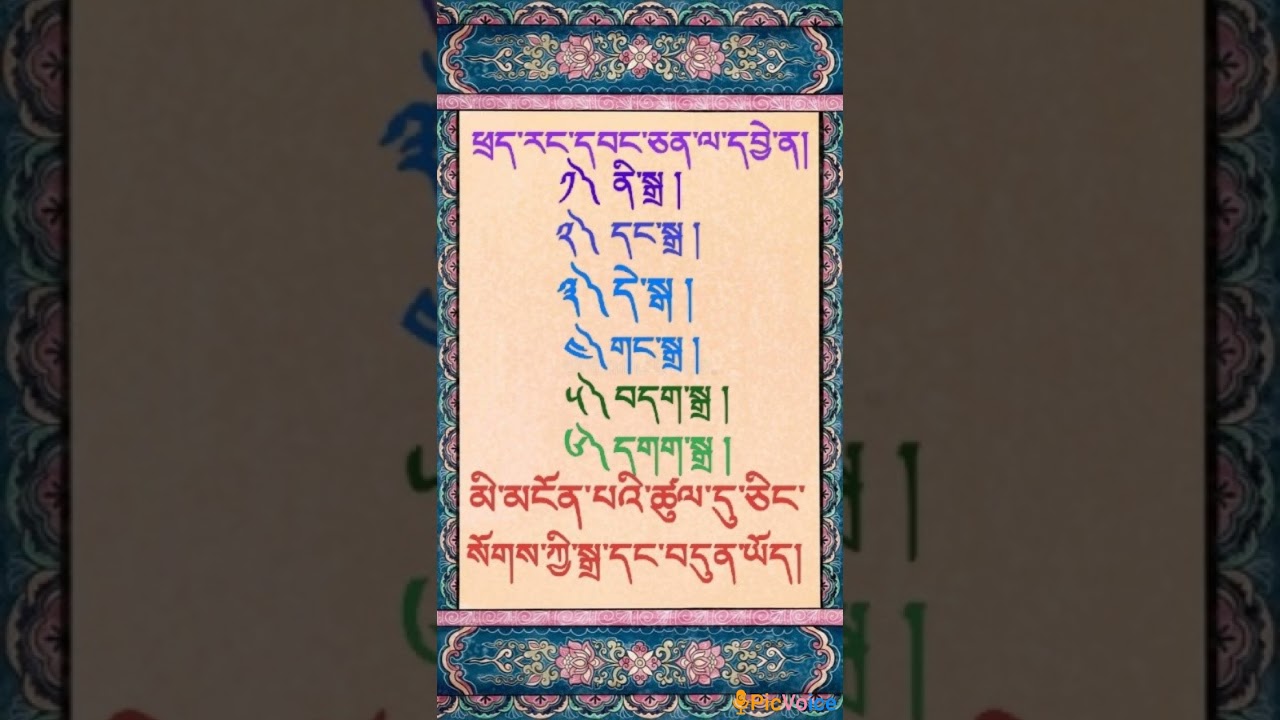 ཕྲད་རང་དབང་ཅན་ལ་དབྱེ་ན།
༡༽ ནི་སྒྲ །
༢༽ དང་སྒྲ །
༣༽ དེ་སྒྲ །
༤༽ གང་སྒྲ །
༥༽ བདག་སྒྲ །
༦༽ དགག་སྒྲ །
མི་མངོན་པའི་ཚུལ་དུ་ཅིང་
སོགས་ཀྱི་སྒྲ་དང་བདུན་ཡོད།
PicVoice